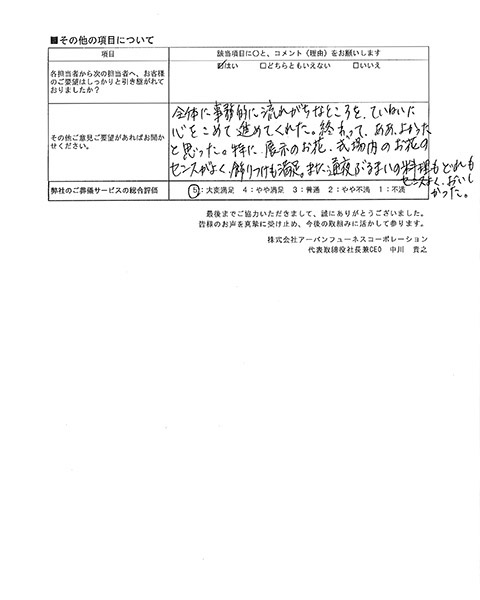 ■その他の項目について
項目
該当項目に○と、コメント(理由)をお願いします
各担当者から次の担当者へ、お客様
のご要望はしっかりと引き継がれて
おりましたか?
☑はい □どちらともいえない □いいえ
その他ご意見ご要望があればお聞か
せください。
全体に事務的に流れがちなところを、ていねいに
心をこめて進めてくれた。終わって、ああ、よかった
と思った。特に、展示のお花、式場内のお花の
センスがよく、飾りつけも満足。また、通夜ぶるまいの料理もどれも
センスよく、おいし
かった。
弊社のご葬儀サービスの総合評価
5:大変満足 4:やや満足 3:普通 2:やや不満 1:不満
最後までご協力いただきまして、誠にありがとうございました。
皆様のお声を真摯に受け止め、今後の取組みに活かして参ります。
株式会社アーバンフューネスコーポレーション
代表取締役社長兼CEO 中川 貴之